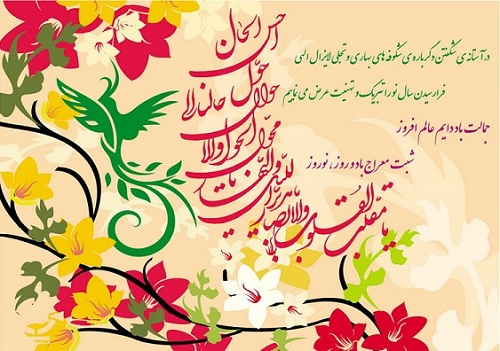 در آستانه‌ی شکفتن دگرباره‌ی شکوفه‌های بهاری و تجلی لایزال الهی
فرارسیدن سال نو را تبریک و تهنیت عرض می‌نماییم
جمالت باد دایم عالم افروز
شبت معراج باد و روز، نوروز
یا مقلب القلوب والابصار
یا مدبر اللیل و النهار
یا محول الحول والاحوال
حول حالنا الی
احسن الحال